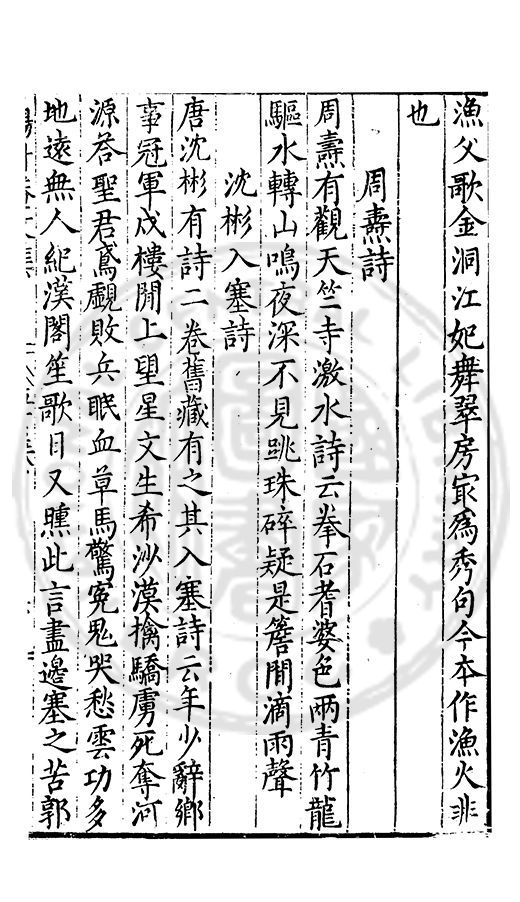 漁父歌金洞江妃舞翠房㝡爲秀句今本作漁火非
也
周燾詩
周燾有觀天竺寺激水詩云拳石耆婆色兩青竹龍
驅水轉山鳴夜深不見跳珠碎疑是簷閒滴雨聲
沈彬入塞詩
唐沈彬有詩二卷舊藏有之其入塞詩云年少辭鄉
事冠軍戍樓閒上望星文生希沙漠擒驕虜死奪河
源荅聖君鳶覷敗兵眠血草馬驚寃鬼哭愁雲功多
地遠無人紀漢閣笙歌日又曛此言盡邊塞之苦郭